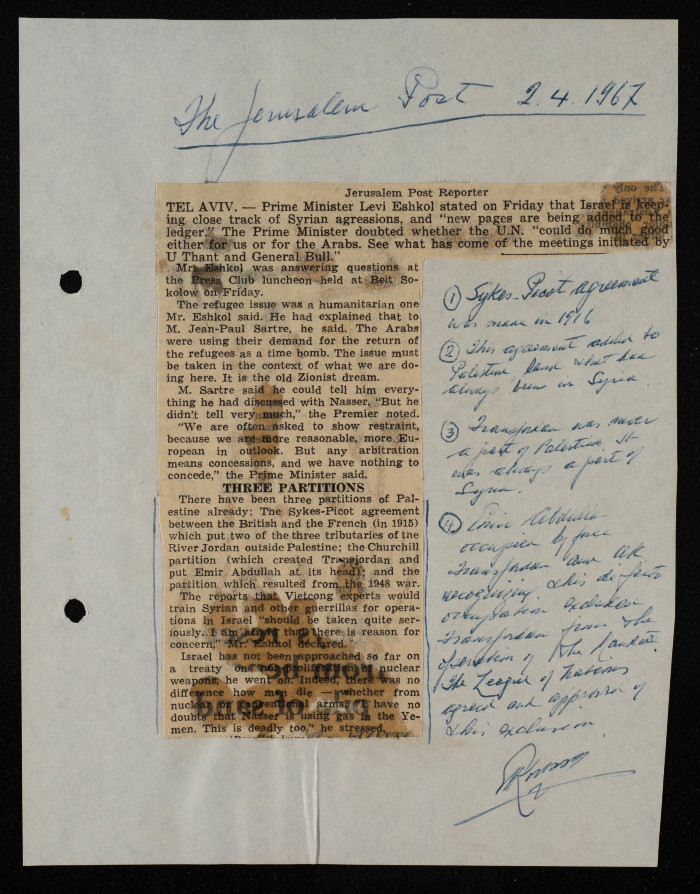 The Jerusalem Post 2.4.1967
Jerusalem Post Reporter
TEL AVIV. — Prime Minister Levi Eshkol stated on Friday that Israel is keep-
ing close track of Syrian agressions, and "new pages are being added to the
ledger." The Prime Minister doubted whether the U.N. "could do much good
either for us or for the Arabs. See what has come of the meetings initiated by
U Thant and General Bull."
Mr. Eshkol was answering questions at
the Press Club luncheon held at Beit So-
kolow on Friday.
The refugee issue was a humanitarian one
Mr. Eshkol said. He had explained that to
M. Jean-Paul Sartre, he said. The Arabs
were using their demand for the return of
the refugees as a time bomb. The issue must
be taken in the context of what we are do-
ing here. It is the old Zionist dream.
M. Sartre said he could tell him every-
thing he had discussed with Nasser. "But he
didn't tell very much," the Premier noted.
"We are often asked to show restraint,
because we are more reasonable, more Eu-
ropean in outlook. But any arbitration
means concessions, and we have nothing to
concede," the Prime Minister said.
THREE PARTITIONS
There have been three partitions of Pal-
estine already: The Sykes-Picot agreement
between the British and the French (in 1915)
which put two of the three tributaries of the
River Jordan outside Palestine; the Churchill
partition (which created Transjordan and
put Emir Abdullah at its head); and the
partition which resulted from the 1948 war.
The reports that Vietcong experts would
train Syrian and other guerrillas for opera-
tions in Israel "should be taken quite ser-
iously. I am that there is reason for
concern," Mr. Eshkol declared.
Israel has not been approached so far on
a treaty on nuclear
weapons, he went on. Indeed, there was no
difference how we die — whether from
nuclear or conventional arms. "I have no
doubts that Nasser is using gas in the Ye-
men. This is deadly too," he stressed.
① Sykes-Picot agreement
was made in 1916
② This agreement added to
Palestine land that had
always been in Syria
③ Transjordan was never
a part of Palestine. It
was always a part of
Syria.
④ Emir Abdulla
occupied by force
Transjordan and UK
recognizing this de facto
occupation excluded
Transjordan from the
operation of the Mandate.
The League of Nations
agreed and approved of
this exclusion.